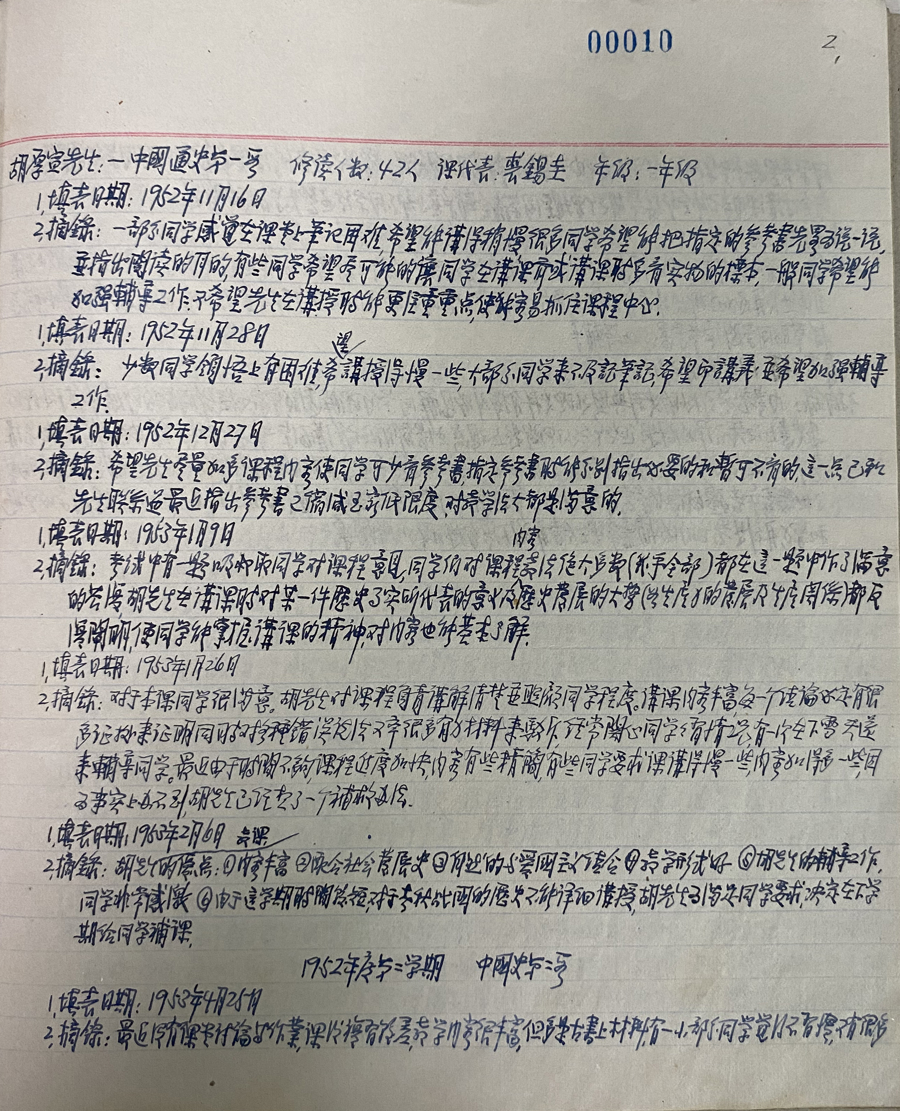 00010
2
胡厚宣先生:—中國通史第一段 修读人数:42人 课代表:裘錫圭 年级:一年级
1,填表日期:1952年11月16日
2,摘錄:一部分同学感覚在课堂上笔记困难希望能講得稍慢很多同学希望能把指定的参考書先畧为说一说,
並指出閱读的目的,有些同学希望尽可能的讓同学在講课前或講课時多看实物的標本,一般同学希望能
加强輔导工作.不希望先生在講授時能更注重重点,使能容易抓住课程中心.
1,填表日期:1952年11月28日
望
2,摘錄: 少数同学领悟上有困难,希講授得慢一些,大部分同学来不及記筆記,希望印講義,並希望加强輔导
工作.
1,填表日期:1952年12月27日
2,摘錄:希望先生尽量加多课程内容使同学可少看参考書,指定参考書時能分别指出必要的和暫可不看的,这一点已和
先生联系過最近指出参考書已縮减至最低限度,对教学法大部是满意的.
1,填表日期:1953年1月9日
内容
2,摘錄:考试中有一题吸取同学对课程意見,同学們对课程教法绝大多数(幾乎全部)都在这一题中作了满意
的答復胡先生在講课時对某一件歷史事实所代表的意义及歷史發展的大勢(如生产力的發展及生产関係)都反
復闡明,使同学能掌握講课的精神,对内容也能基本了解.
1,填表日期:1953年1月26日
2,摘錄:对于本课同学很满意.胡先生对课程自有講解清楚並照顾同学程度.講课内容丰富,每一个结論必定有很
多证据来证明同時对各種错误说法又举很多有力材料来駁斥,经常関心同学学習情况,有一次在下雪天還
来輔导同学.最近由于時間不夠课程进度加快内容有些精簡,有些同学要求课講得慢一些,内容加得多一些,因
为事实上办不到,胡先生已经想了一个補救办法.
1,填表日期:1953年2月6日
2,摘錄:胡先生的優点:①内容丰富②联合社会發展史③自述的与愛國主义结合④教学形式好 ⑤胡先生的輔导工作,
同学非常感激 ⑥由于这学期時間较短,对于春秋战國的歷史不能详细講授,胡先生为满足同学要求,决定在下学
期给同学補课.
1952年度第二学期 中國史第二段
1,填表日期:1953年4月25日
2,摘錄:最近没有课堂讨論与作業,课後複習後表教学内容很丰富,但多是古書上材料,有一小部分同学覚得不習慣,有很多